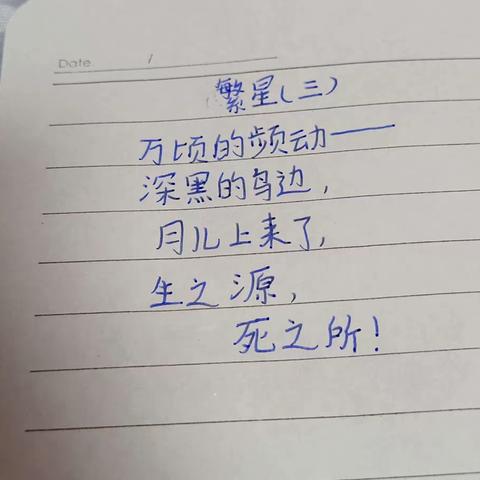 Date /
繁星(三)
万顷的频动——
深黑的鸟边,
月儿上来了,
生之源,
死之所!